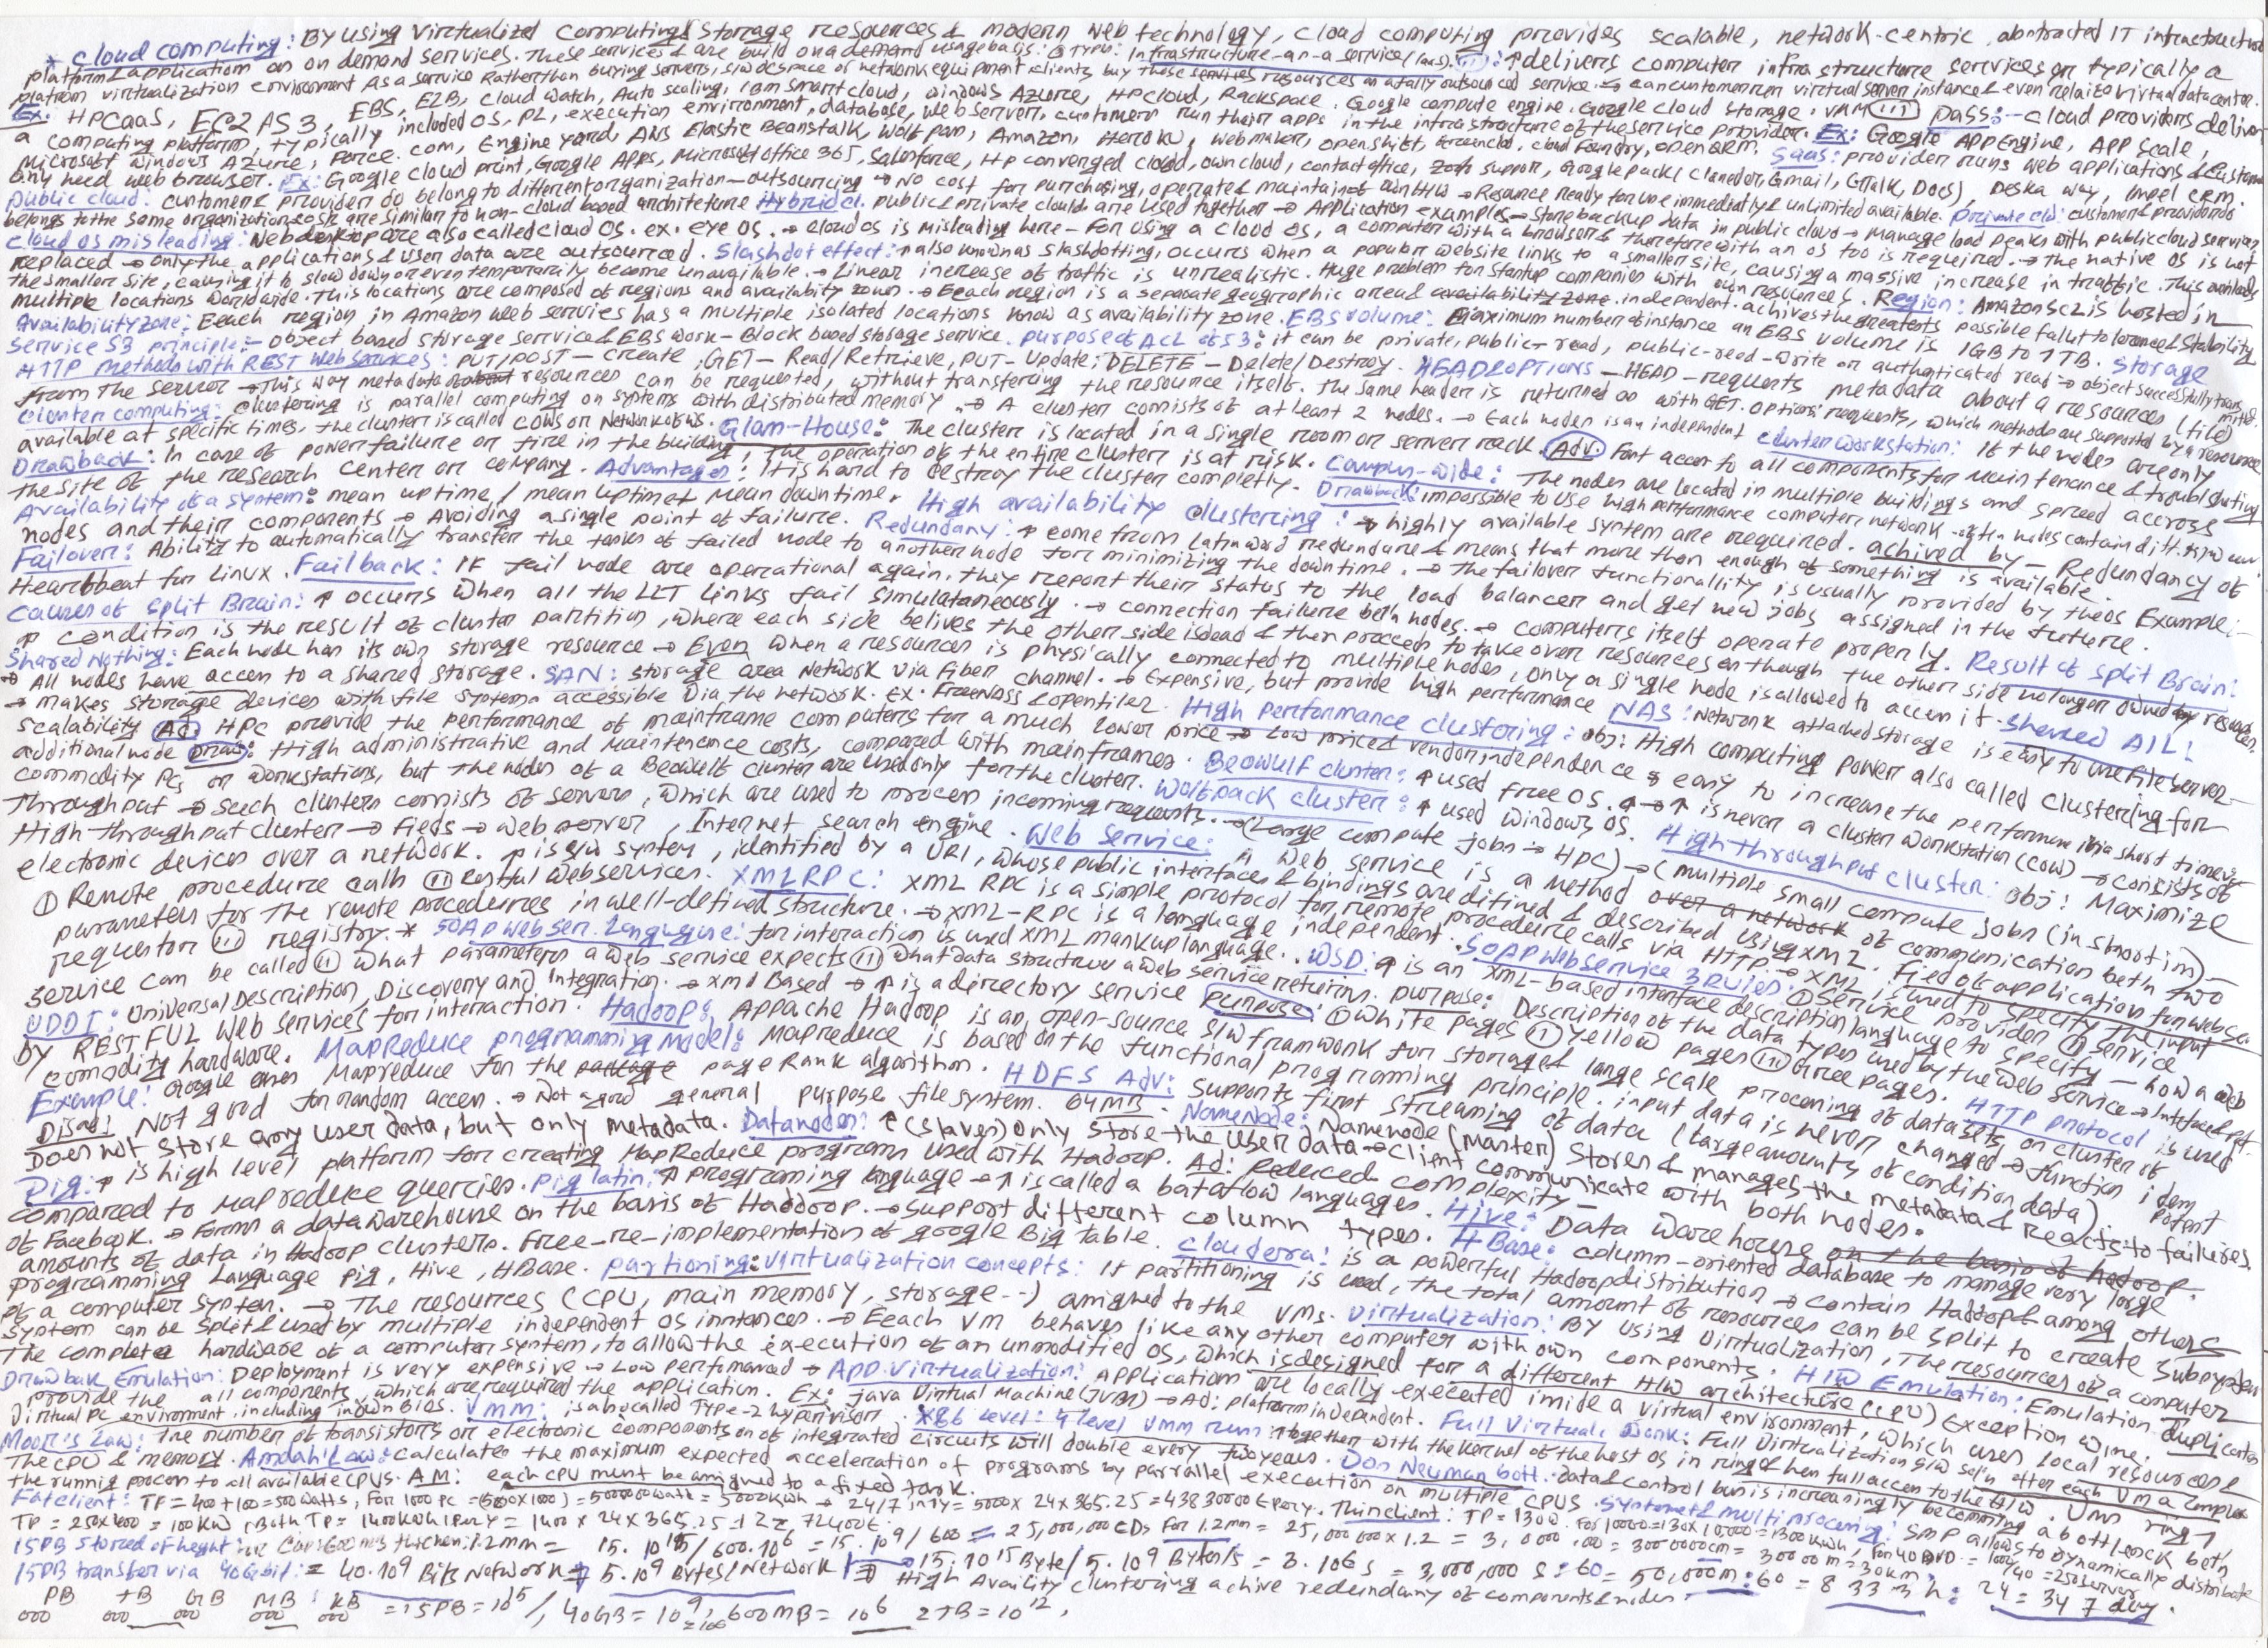 * Cloud computing: By using virtualized computing & storage resources & modern web technology, cloud computing provides scalable, network-centric, abstracted IT infrastructure
platforms & applications as on demand services. These services are build on a demand usage basis. Infrastructure-as-a service (IaaS): delivers computer infrastructure services or typically a
platform virtualization environment as a service Rather than buying servers, s/w, dcspace or network equipment clients buy those resources as a fully outsourced service. → can customer run virtual server instances & even relaize virtual datacenter.
Ex: HPCaaS, EC2 AS3, EBS, ELB, Cloud watch, Auto scaling, IBM SmartCloud, Windows Azure, HPcloud, Rackspace. Google compute engine. Google cloud storage. (III) pass:- cloud providers deliver
a computing platform, typically included OS, PL, execution environment, database, web server, customers run their apps in the infrastructure of the service provider. Ex: Google APP Engine, APP Scale,
Microsoft Windows Azure, Force.com, Engine Yard, AWS Elastic Beanstalk, Wolf pam, Amazon, Heroku, webmaker, openshift, cloud Foundry, openQRM. Saas: provider runs web applications & customers
any need web browser. Ex: Google cloud print, Google Apps, Microsoft office 365, Salesforce, HP converged cloud, own cloud, contact office, Zoho support, Google pack (Calendar, Gmail, GTalk, Docs), Deska way, Impel CRM.
Public cloud: customer & provider do belong to different organization—outsourcing → No cost for purchasing, operate & maintain of own H/W → Resource ready for use immediatly & unlimited available. private cld: customer & provider do
belongs to the same organization, costs are similar to non-cloud based architeture Hybride cl. public & private clouds are used together → Application examples → Store backup data in public cloud → manage load peaks with public cloud services
Cloud OS misleading: Webdesktop are also called cloud OS. ex. eye OS. → cloud OS is misleading here - For using a cloud OS, a computer with a browser & therefore with an OS too is required. → The native OS is not
replaced → only the applications & user data are outsourced. Slashdot effect: ↑ also known as slashdotting, occurs when a popular website links to a smaller site, causing a massive increase in traffic. This overloads
the smaller site, causing it to slow down or even temporarily become unavailable. → Linear increase of traffic is unrealistic. Huge problem for startup companies with own resources. Region: Amazon EC2 is hosted in
multiple locations worldwide. This locations are composed of regions and availability zones. → Eeach region is a separate geographic area & independent. achives the greatests possible fallut tolerance & stability
Availability zone: Eeach region in Amazon web servies has a multiple isolated locations know as availability zone. EBS volume: maximum number of instance an EBS volume is 1GB to 1TB. Storage
Service S3 principle:- object based storage service & EBS work - Block based storage service. purpose of ACL of S3: it can be private, public-read, public-read-write or authenticated read → object successfully transmited.
HTTP methods with REST web services: PUT/POST - create, GET - Read/Retrieve, PUT - Update, DELETE - Delete/Destroy. HEAD & OPTIONS - HEAD - requests metadata about a resources (file)
from the server → This way metadata resources can be requested, without transfering the resource itself. The same header is returned as with GET. option: requests, which methods are supported by a resource
Cluster computing: clustering is parallel computing on systems with distributed memory. → A cluster consists of at least 2 nodes. → Each nodes is an independent Cluster workstation: If the nodes are only
available at specific times, the cluster is called COWs or Network of WS. Glam-House: The cluster is located in a single room or server rack. Adv. Fast access to all components for Maintenance & troubleshooting
Drawback: In case of power failure or fire in the building, the operation of the entire cluster is at risk. Campus-wide: The nodes are located in multiple buildings and spread accross
the site of the research center or company. Advantages: it is hard to destroy the cluster completly. Drawback: impossible to use high performance computer network
Availability of a system: mean uptime / mean uptime + mean downtime. High availability clustering: → highly available system are required. achived by - Redundancy of
nodes and their components → Avoiding a single point of failure. Redundany: ↑ come from Latin word redundare & means that more than enough of something is available.
Failover: Ability to automatically transfer the tasks of failed node to another node for minimizing the downtime. → The failover functionallity is usually provided by the OS Example:-
Heartbeat for Linux. Failback: If fail node are operational again, they report their status to the load balancer and get new jobs assigned in the furture.
Causes of split Brain: ↑ occurs when all the LLT links fail simulataneously. → connection failure betn nodes. → computers itself operate properly. Result of split Brain:
↑ condition is the result of cluster partition, where each side belives the other side is dead & then proceeds to take over resources as though the other side no longer owned resources.
Shared Nothing: Each node has its own storage resource → Even when a resources is physically connected to multiple nodes, only a single node is allowed to access it. Shared All:
→ All nodes have access to a shared storage. SAN: storage area Network via Fiber channel. → Expensive, but provide high performance NAS: Network attached storage is easy to use file server
→ makes storage devices with file systems accessible via the network. ex. FreeNASS & openfiler. High performance clustering: obj: High computing power also called clustering for
scalability Ad: HPC provide the performance of mainframe computers for a much lower price → Low price & vendor independence & easy to increase the performance via short time
additional node Draw: High administrative and maintenence costs, compared with mainframes. Beowulf cluster: ↑ used free OS. ↑ → ↑ is never a cluster workstation (COW) → consists of
commodity PCs or workstations, but the nodes of a Beowulf cluster are used only for the cluster. Wolfpack cluster: ↑ used windows OS. High throughput cluster: obj: Maximize
Throughput → such clusters consists of servers, which are used to process incoming requests. → (Large compute jobs → HPC) → (multiple small compute jobs (in short im) -
High-throughput cluster → Fieds → web server, Internet search engine. Web Service: A web service is a method of communication betn two
electronic devices over a network. ↑ is s/w system, identified by a URI, whose public interfaces & bindings are difined & described using XML. Fied of application for web ser
① Remote procedure calls ② Restful Webservices. XMLRPC: XML RPC is a simple protocol for remote procedure calls via HTTP → XML is used to specify the input
parameters for the remote procedures in well-defined structure. → XML-RPC is a language independent. SOAP Web Service 3 Rules: ① Service provider ② Service
requestor ③ registry. * SOAP web ser. Language: for interaction is used XML markup language. WSD: ↑ is an XML-based interface description language to specify - how a web
service can be called ② What parameters a web service expects ③ What data structrue a web service returns. purpose: Description of the data types used by the web service → Interface
UDDI: Universal Description, Discovery and Integration. → xml Based → ↑ is a directory service purpose: ① White pages ② Yellow pages ③ Gree pages. HTTP protocol is used
by RESTFUL Web services for interaction. Hadoop: Appache Hadoop is an open-source S/W framwork for storage & large scale processing of data sets on cluster of
comodity hardware. MapReduce programming Model: Mapreduce is based on the functional programming principle. input data is never changed → function idem potent
Example: Google uses Mapreduce for the page Rank algorithm. HDFS Adv: Supports first streaming of data (large amounts of condition data)
Disad: Not good for random access. → Not a good general purpose file system. 64MB. Namenode: Namenode (Master) Stores & manages the metadata & Reacts to failures.
Does not store any user data, but only metadata. Datanodes: ↑ (slaves) only store the user data → Client communicate with both nodes.
Pig: ↑ is high level platform for creating MapReduce programs used with Hadoop. Ad: Reduced complexity
compared to Map reduce quercies. Pig latin: ↑ programing language → ↑ is called a dataflow languages. Hive: Data ware house on the basis of hadoop.
of Facebook. → Forms a data warehouse on the basis of Hadoop. → support different column types. HBase: column-oriented database to manage very large
amounts of data in Hadoop clusters. Free-re-implementation of google Big table. Cloudera: is a powerful Hadoop distribution → contain Hadoop & among others
programming Language pig, Hive, HBase. partioning: virtualization concepts: If partitioning is used, the total amount of resources can be split to create subsystem
of a computer system. → The resources (CPU, main memory, storage --) assigned to the VMs. Virtualization: By using virtualization, The resources of a computer
system can be split & used by multiple independent OS instances. → Eeach VM behaves like any other computer with own components. H/W Emulation: Emulation duplicates
The complete hardware of a computer system, to allow the execution of an unmodified OS, which is designed for a different H/W architecture (CPU) Exception wine.
Drawbak Emulation: Deployment is very expensive → Low perfomanced → App. virtualization: Applications are locally executed inside a virtual environment, which uses local resources &
provide the all components, which are required the application. Ex: java Virtual Machine (JVM) → Ad: platform independent. Full Virtual. Work: Full Virtualization S/W sol'n offer each VM a complex
virtual PC environment, including in own BIOS. VMM: is also called Type-2 hypervisor. X86 Level: 4 level VMM runs together with the kernel of the host OS in ring & hen full access to the H/W. VMs ring 1
Moor's Law: The number of transistors or electronic components on of integrated circuits will double every two years. Von Neuman bott.: data & control bus is increasingly becomming a bottleneck betn
the CPU & memory. Amdahl Law: calculates the maximum expected acceleration of programs by parrallel execution on multiple CPUS. Symmetric multi processing: SMP allows to dynamically distribute
the runnig process to all available CPUs. AM: each CPU must be assigned to a fixed task.
Fat client: TP = 400+100 = 500 watts, For 1000 pc = (500x1000) = 500000 watts = 5000 kwh → 24/7 in 1y = 5000 x 24 x 365.25 = 43830000 € pery. Thin client: TP = 130W.
TP = 250x400 = 100 KW, Both TP = 1400 kwh 1 per Y = 1400 x 24 x 365.25
15PB stored of height: 600 mb 1.2mm = 15.10^15/600.10^6 = 15.10^9/600 = 25,000,000 CDs For 1.2mm = 25,000,000 x 1.2 = 3,0000,00 = 3000000cm = 30000m = 30km.
15PB transfer via 40Gbit: = 40.10^9 Bits Network → 5.10^9 Bytes/Network → 15.10^15 Byte/5.10^9 Byte/s = 3.10^6 s = 3,000,000 s : 60 = 50,000m : 60 = 833.3 h : 24 = 34.7 day.
High Availity clustering achive redundany of components & nodes.
PB TB GB MB KB = 15PB = 10^15, 40GB = 10^9, 600MB = 10^6 2TB = 10^12,
000 000 000 000 000